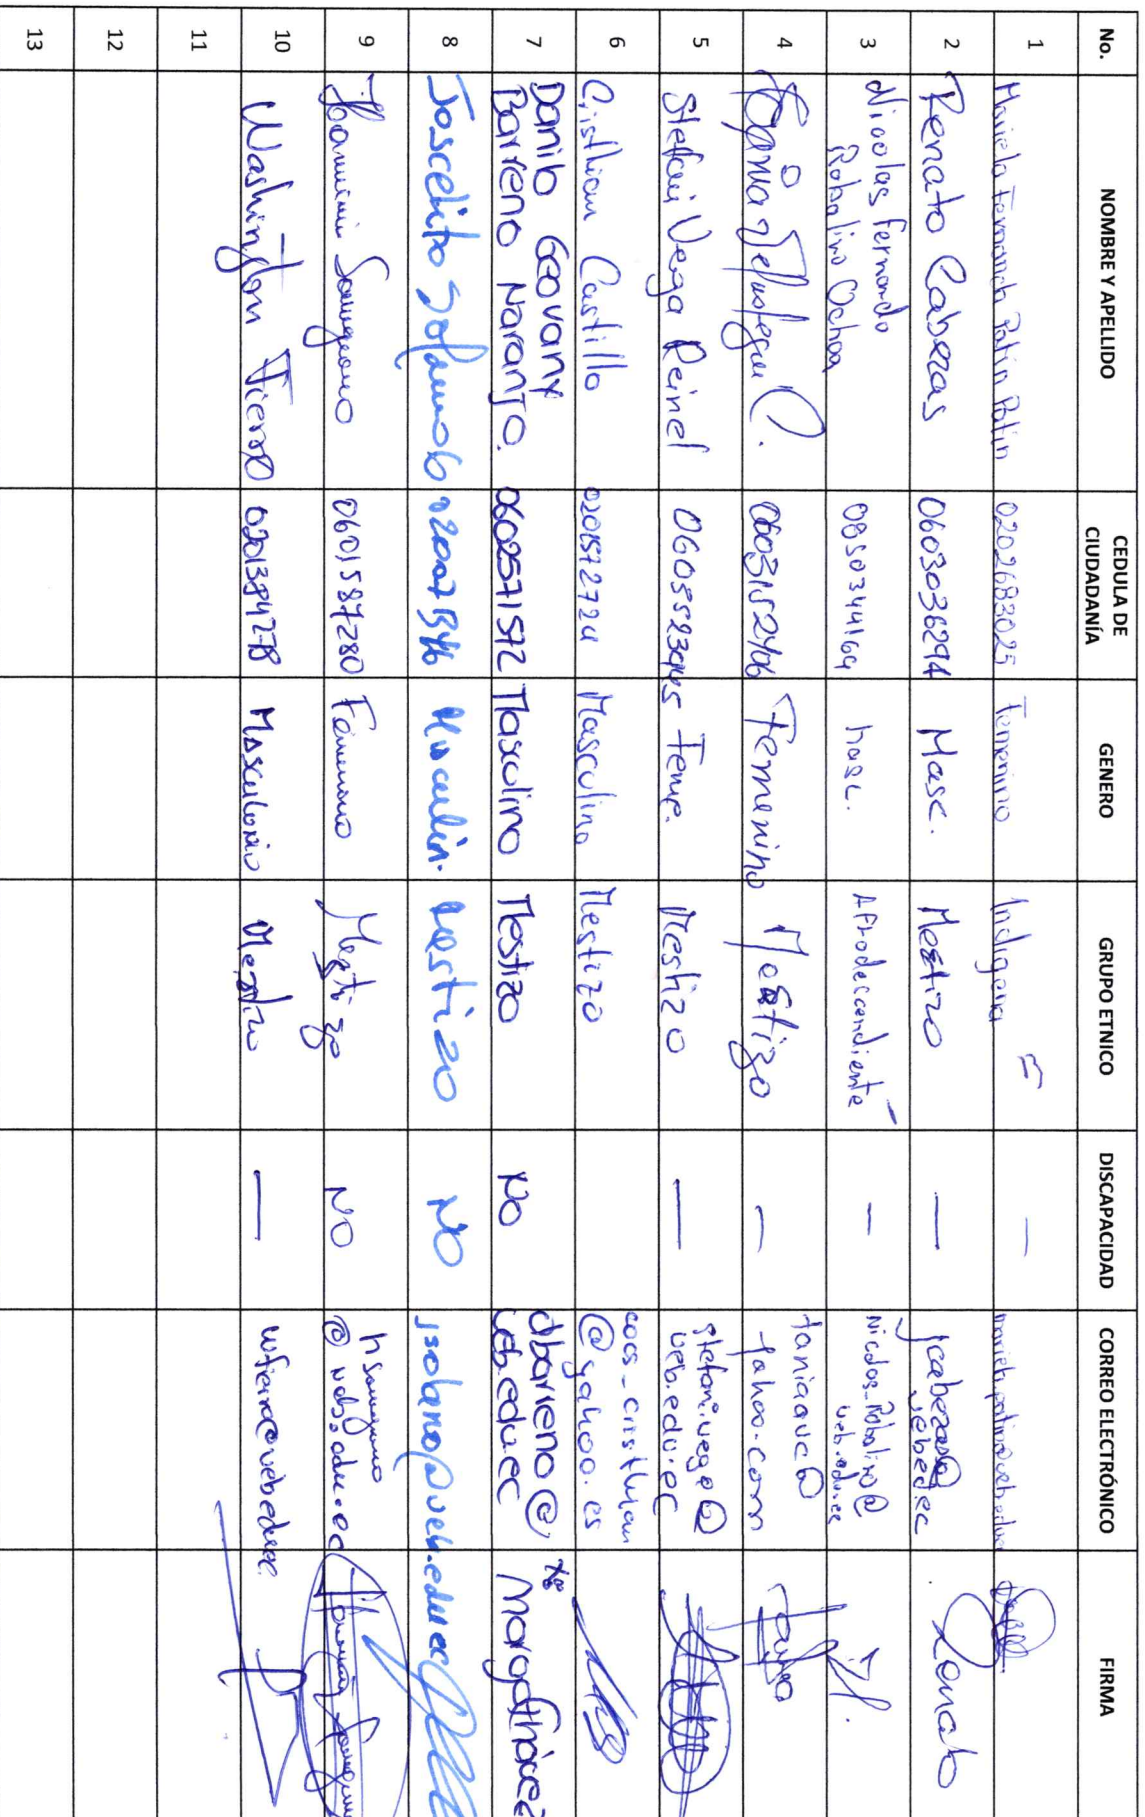 No. NOMBRE Y APELLIDO CEDULA DE CIUDADANÍA GENERO GRUPO ETNICO DISCAPACIDAD CORREO ELECTRÓNICO FIRMA
1 Mariela Fernanda Patin Patin 0202683025 Femenino Indigena —
2 Renato Cabezas 0603036294 Masc. Mestizo —
3 Nicolas Fernando Robalino Ochoa 0850344169 masc. Afrodescendiente — Nicolas_Robalino@ueb.edu.ec
4 Femenino Mestizo — taniaavc@yahoo.com
5 Stefani Vega Reinel Feme. Mestizo — stefani.vega@ueb.edu.ec
6 Cristhian Castillo Masculino Mestizo cocs_cristhian@yahoo.es
7 Danilo Geovany Barreno Naranjo. 0602571572 Masculino Mestizo No dbarreno@ueb.edu.ec
8 Joscelito Solano Masculin. Mestizo NO jsolano@ueb.edu.ec
9 0601587280 Femenino Mestizo NO
10 Washington Fierro 0201384278 Masculino Mestizo — wfierro@ueb.edu.ec
11
12
13